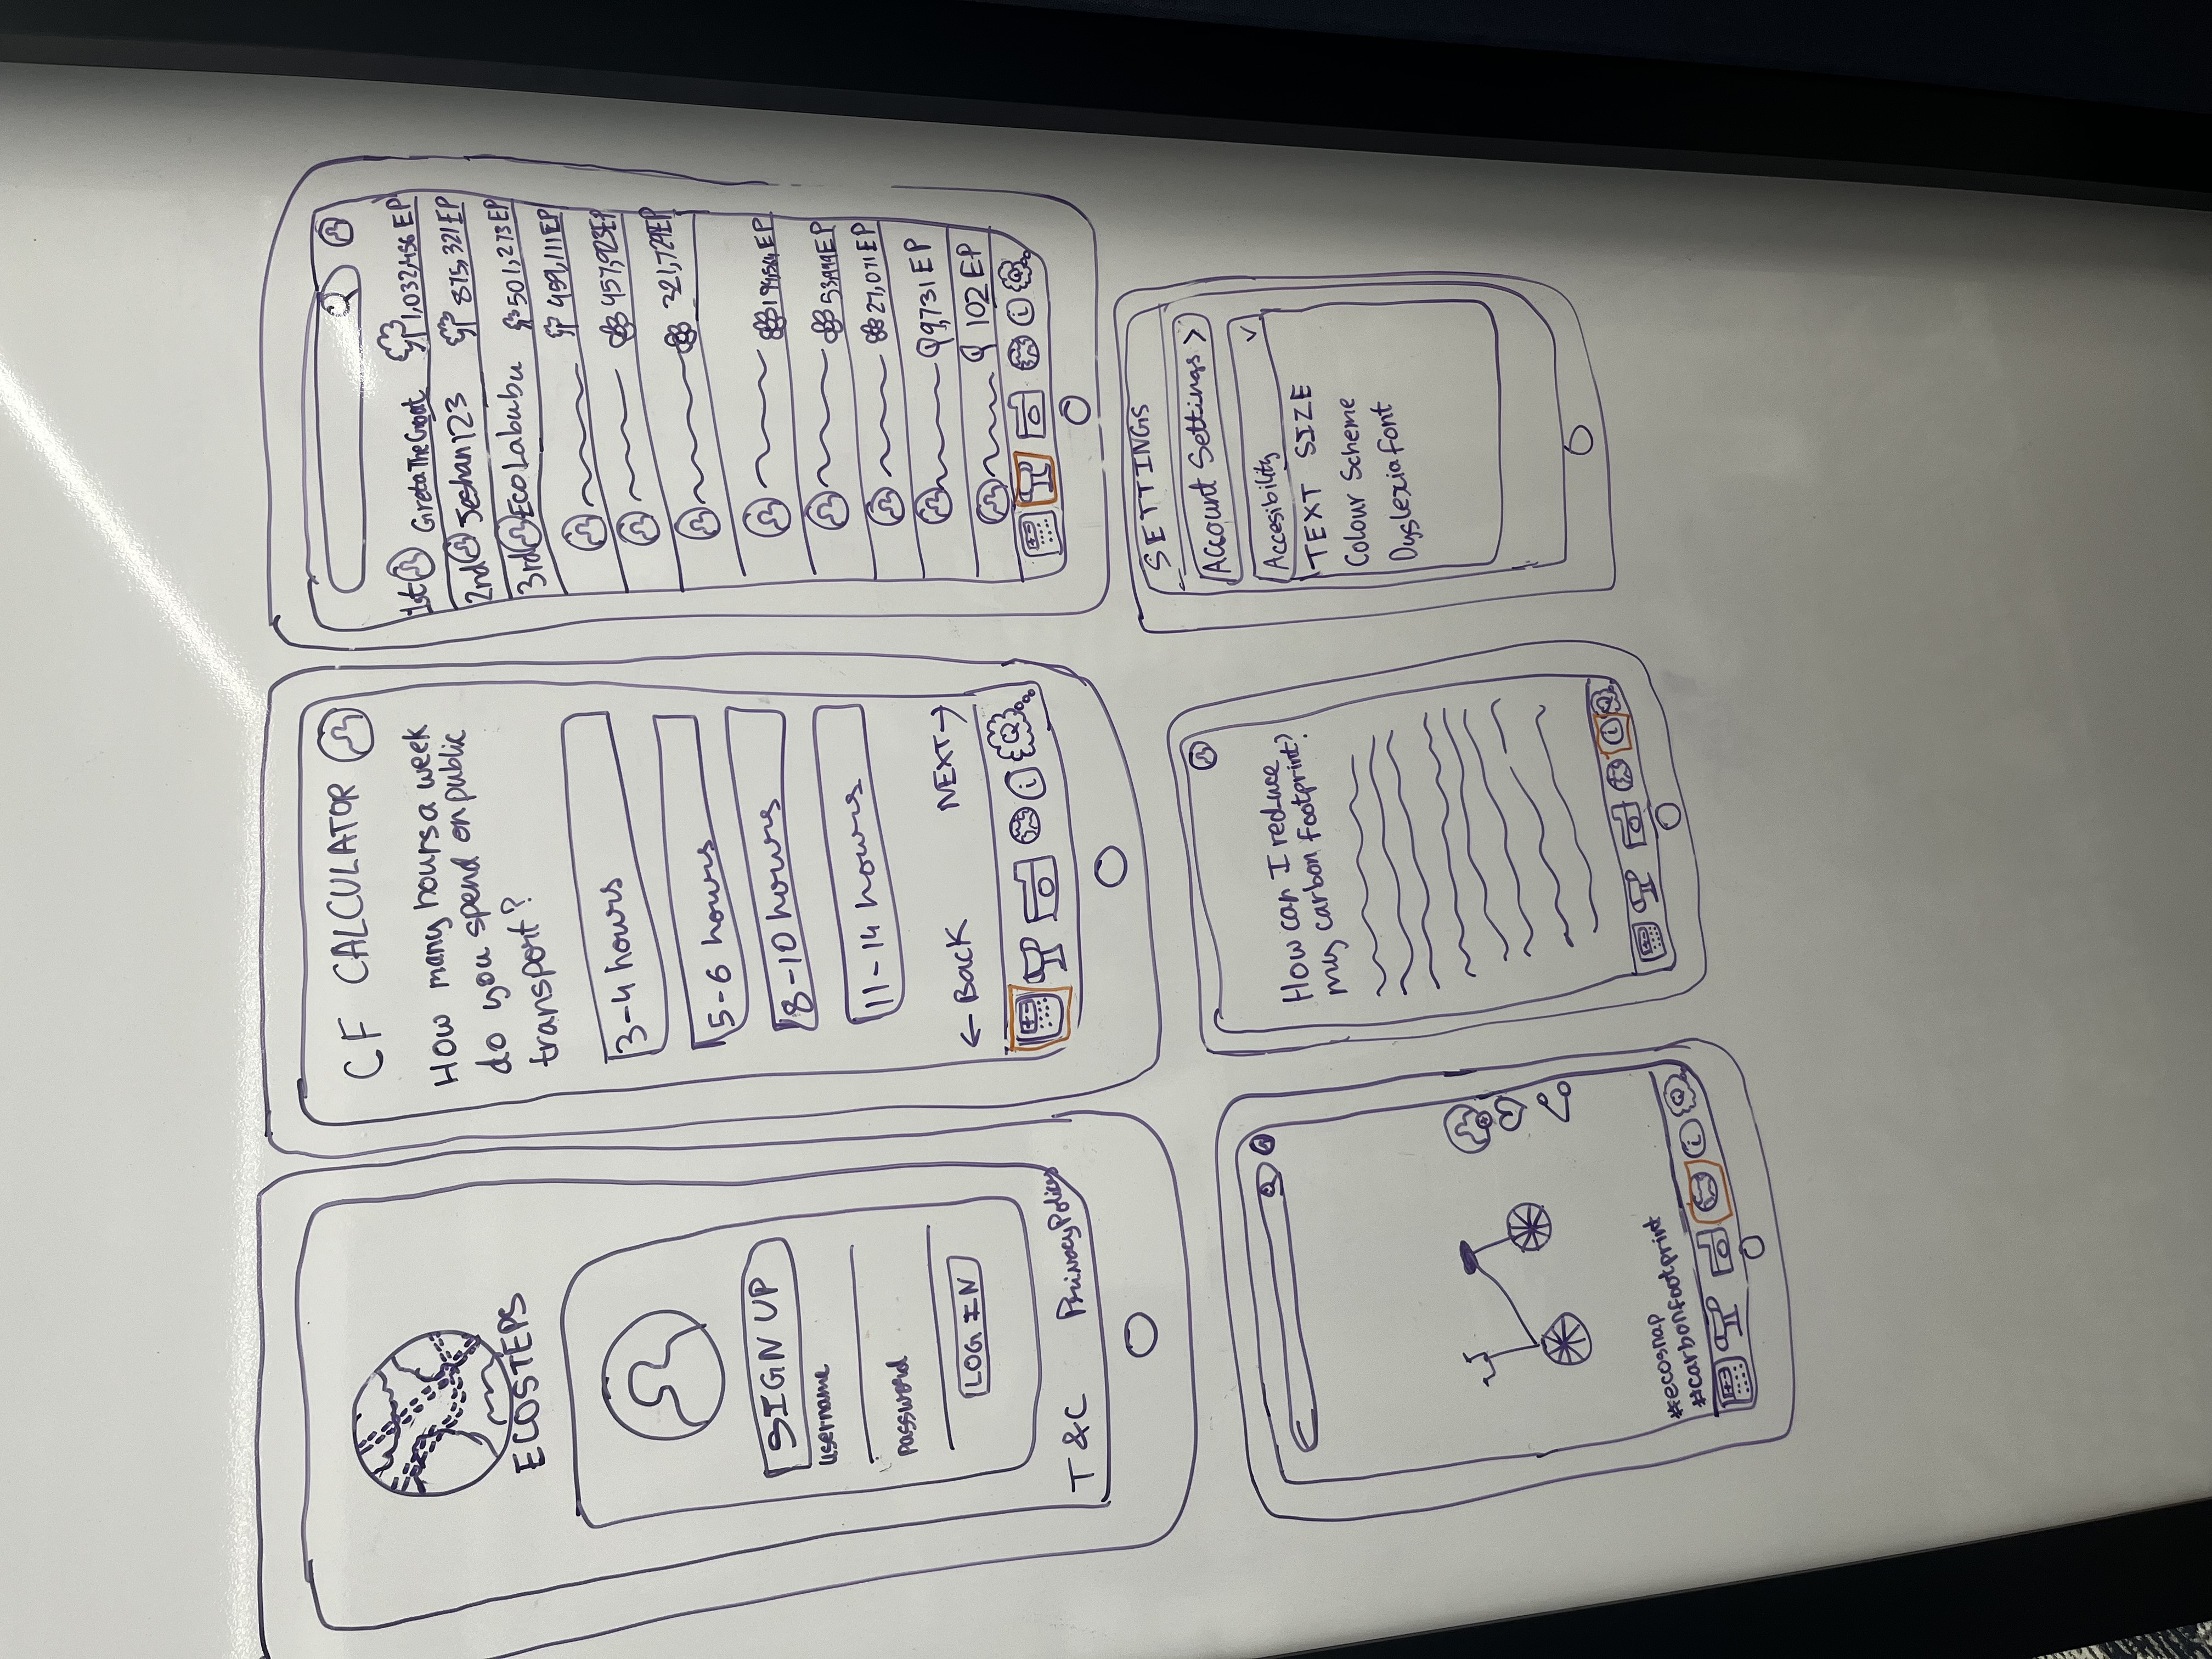 ECOSTEPS
SIGN UP
username
password
LOG IN
T &C
Privacy Policy
CF CALCULATOR
How many hours a week
do you spend on public
transport?
3-4 hours
5-6 hours
8-10 hours
11-14 hours
← BACK
NEXT→
1st GretaTheGoat 1,032,456 EP
2nd Jeshan123 875,321 EP
3rd EcoLabubu 501,273 EP
459,111 EP
457,923EP
321,729EP
EP
EP
27,071EP
9,731 EP
102 EP
#ecosnap
#carbonfootprint
How can I reduce
my carbon footprint?
SETTINGS
Account Settings >
Accesibility
TEXT SIZE
Colour Scheme
Dyslexia font